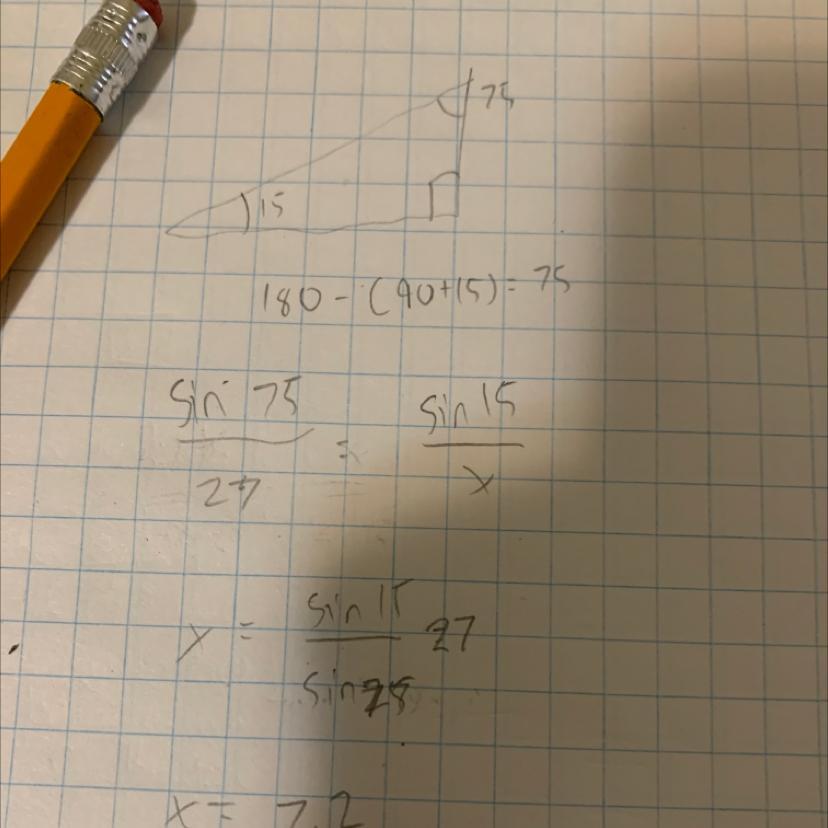 75
15
180 - (90+15) = 75
sin 75 / 27 = sin 15 / x
x = sin 15 / sin 75 27
x = 7.2